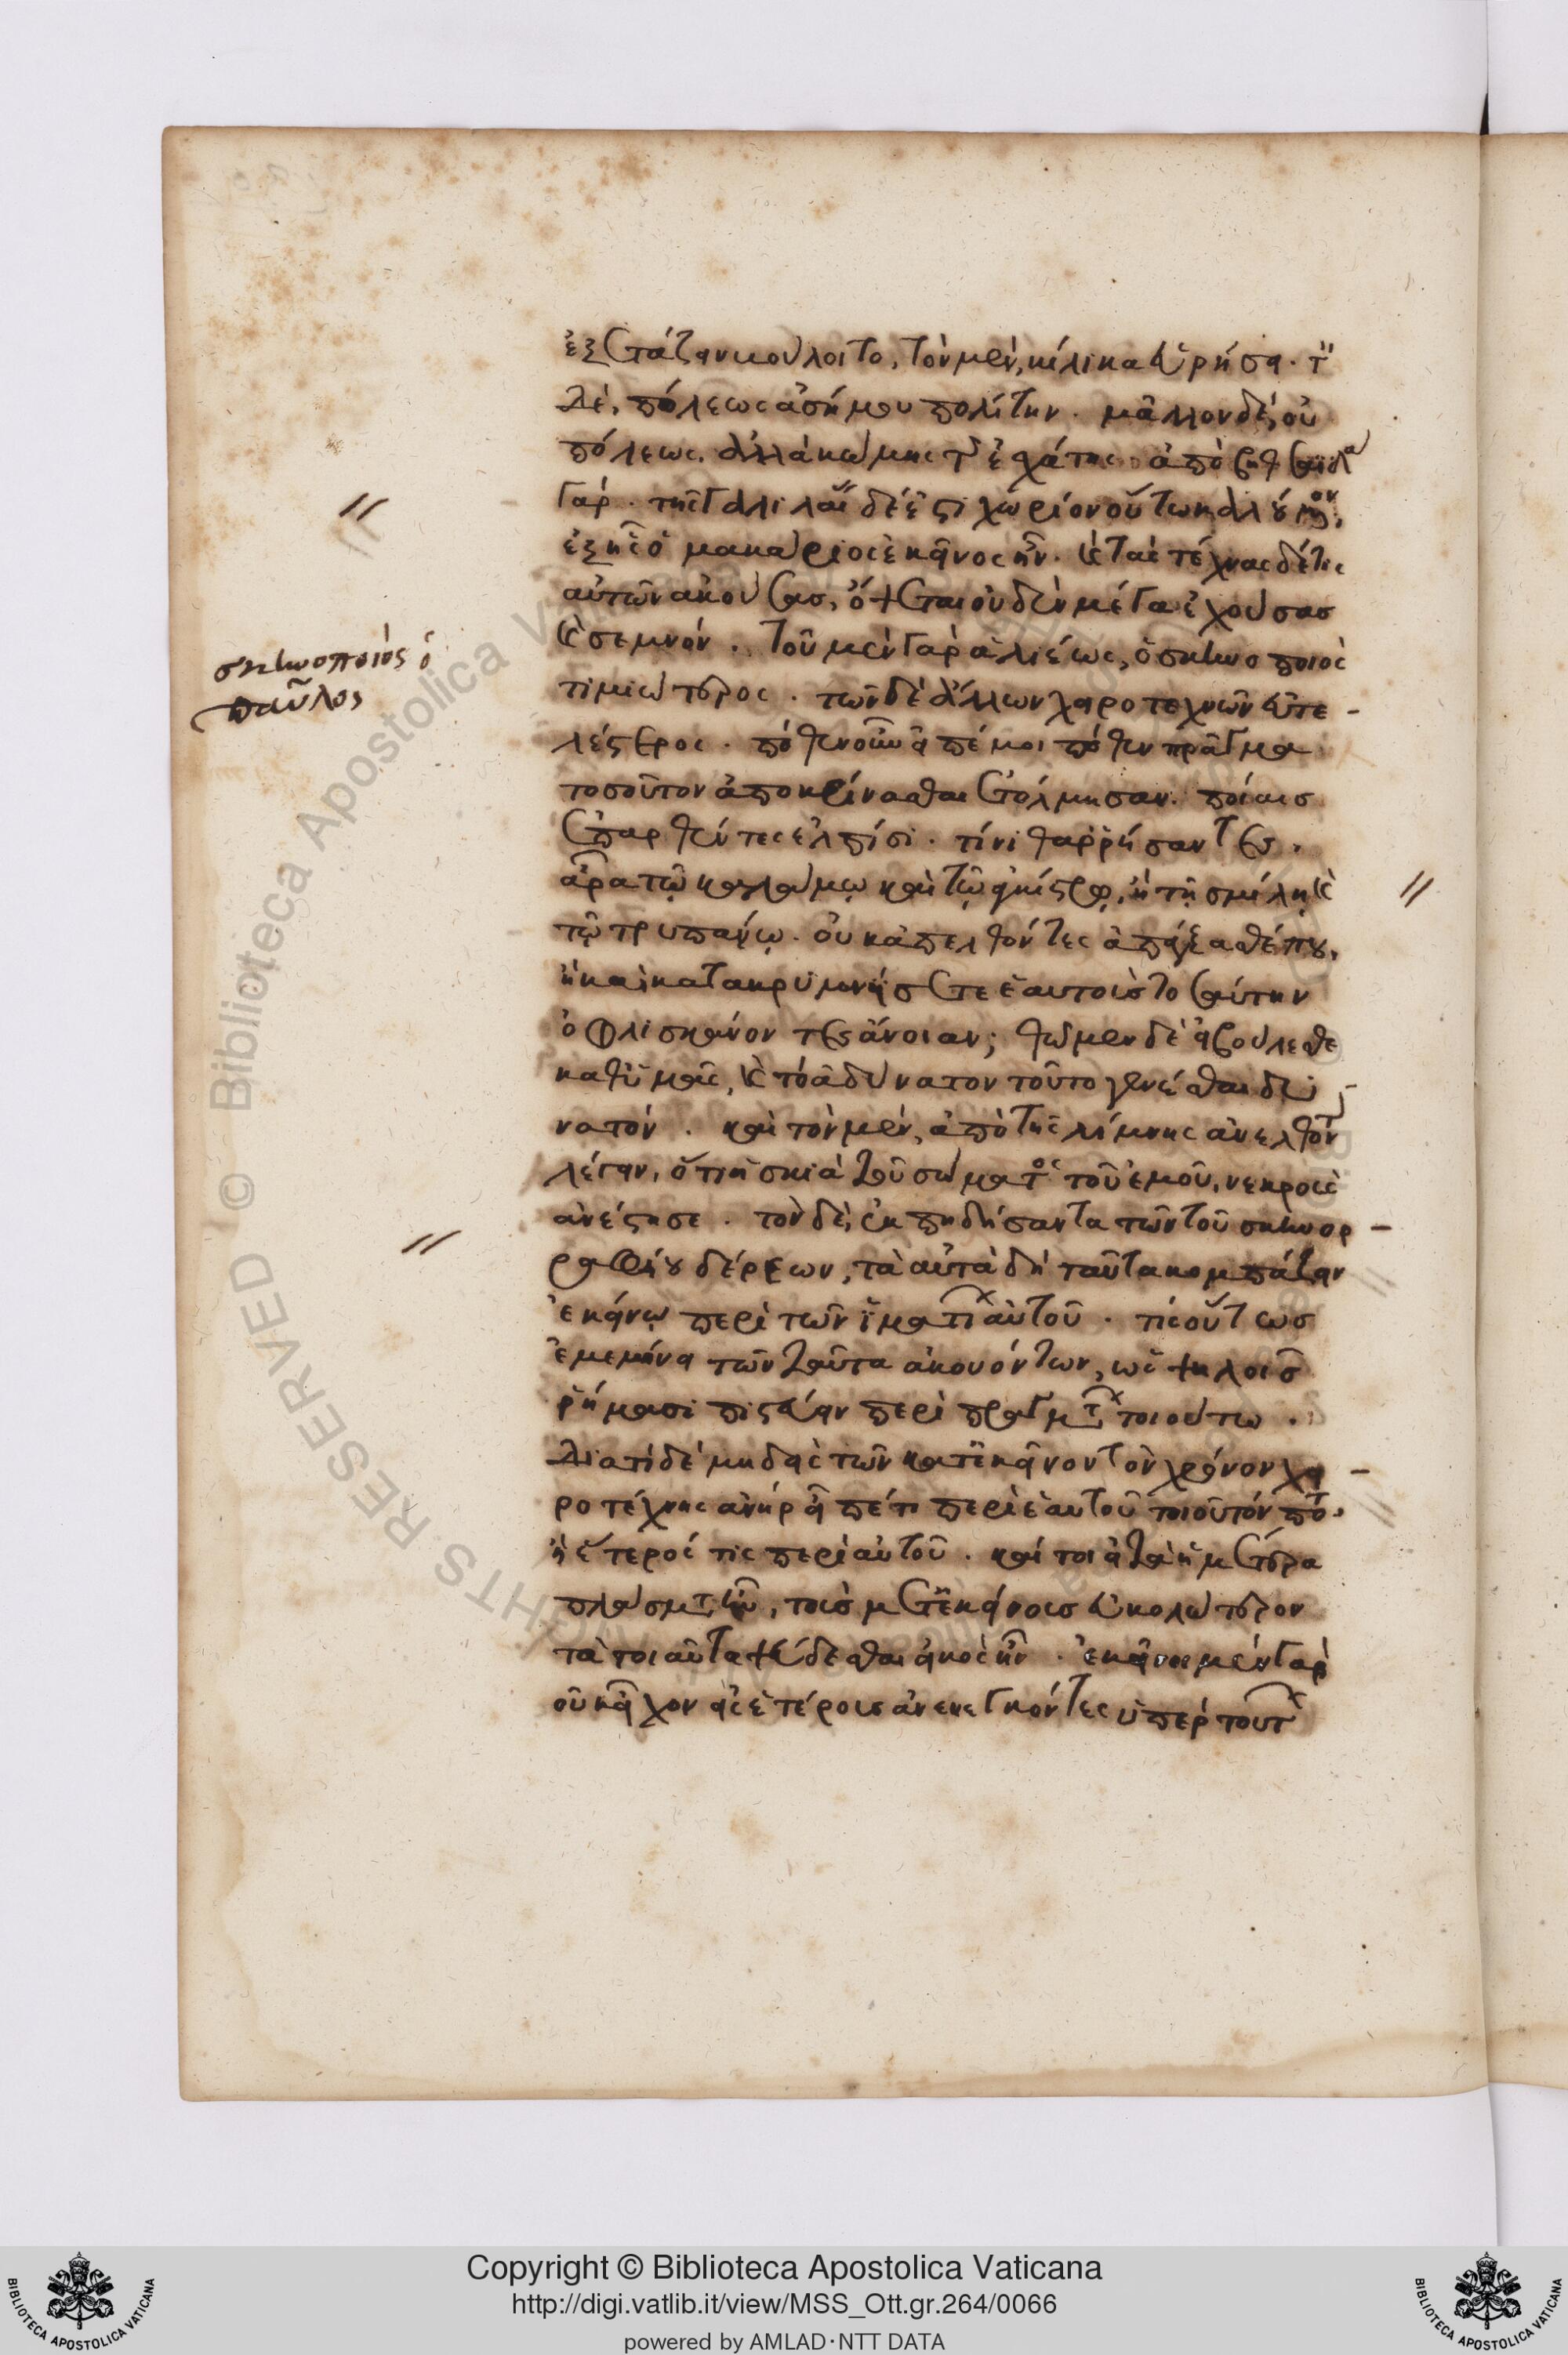 ἐξετάζειν βούλοιτο, τὸν μὲν, κίλικα εὑρήσει. τὸν
δὲ, πόλεως ἀσήμου πολίτην. μᾶλλον δὲ, οὐ
πόλεως, ἀλλὰ κώμης τῆς ἐσχάτης. ἀπὸ βηθσαϊδὰ
γάρ. τῆς γαλιλαίας δέ ἐστι χωρίον οὕτω καλούμενον,
ἐξ ἧς ὁ μακάριος ἐκεῖνος ἦν. καὶ τὰς τέχνας δέ τις
αὐτῶν ἀκούσας, ὄψεται οὐδὲν μέγα ἐχούσας
καὶ σεμνόν. τοῦ μὲν γὰρ ἁλιέως, ὁ σκηνοποιὸς
τιμιώτερος. τῶν δὲ ἄλλων χειροτεχνῶν εὐτε-
λέστερος. πόθεν οὖν εἰπέ μοι πόθεν πρᾶγμα
τοσοῦτον ἀποκρίνασθαι ἐτόλμησαν. ποίαις
ἐπαρθέντες ἐλπίσι. τίνι θαρρήσαντες.
ἆρα τῷ καλάμῳ καὶ τῷ ἀγκίστρῳ, ἢ τῇ σμίλῃ καὶ
τῷ τρυπάνῳ. οὐκ ἀπελθόντες ἀπάγξασθέ που,
ἢ καὶ κατακρημνίσετε ἑαυτοὺς τοσαύτην
ὀφλισκάνοντες ἄνοιαν; θῶμεν δὲ εἰ βούλεσθε
καθ' ὑμᾶς, καὶ τὸ ἀδύνατον τοῦτο γενέσθαι δυ-
νατόν. καὶ τὸν μὲν, ἀπὸ τῆς λίμνης ἀνελθόντα
λέγειν, ὅτι ἡ σκιὰ τοῦ σώματος τοῦ ἐμοῦ, νεκροὺς
ἀνέστησε. τὸν δὲ, ἐκπηδήσαντα τῶν τοῦ σκηνορ-
ραφείου δέρεων, τὰ αὐτὰ δὴ ταῦτα κομπάζειν
ἐκείνῳ περὶ τῶν ἱματίων αὐτοῦ. τίς οὕτως
ἐμεμήνει τῶν ταῦτα ἀκουόντων, ὡς ψιλοῖς
ῥήμασι πιστεύειν περὶ πραγμάτων τοιούτων.
διατί δὲ μηδεὶς τῶν κατ' ἐκεῖνον τὸν χρόνον χει-
ροτέχνης ἀνὴρ εἶπέ τι περὶ ἑαυτοῦ τοιοῦτόν ποτε,
ἢ ἕτερός τις περὶ αὐτοῦ. καί τοι εἰ τὰ ἡμέτερα
πλάσματα ἦν, τοῖς μετ' ἐκείνοις εὐκολώτερον
τὰ τοιαῦτα ψεύδεσθαι εἰκὸς ἦν. ἐκεῖνοι μὲν γὰρ
οὐκ εἶχον εἰς ἑτέρους ἀνενεγκόντες ὑπὲρ τούτων
σκηνοποιός ὁ
παῦλος
Copyright © Biblioteca Apostolica Vaticana
http://digi.vatlib.it/view/MSS_Ott.gr.264/0066
powered by AMLAD·NTT DATA
BIBLIOTECA APOSTOLICA VATICANA
BIBLIOTECA APOSTOLICA VATICANA